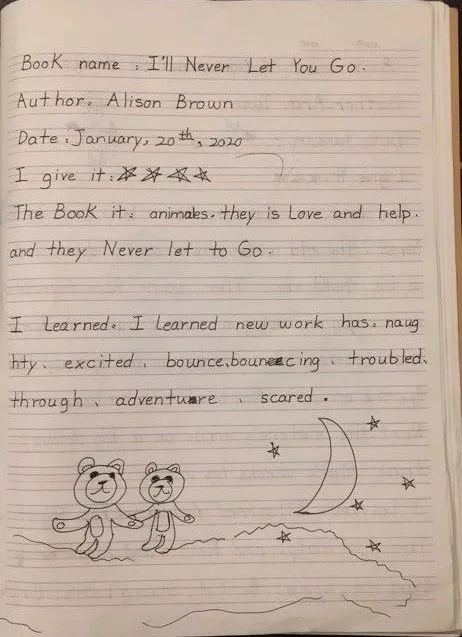 Date Page
Book name : I'll Never Let You Go.
Author: Alison Brown
Date : January, 20th, 2020
I give it: ☆ ☆ ☆ ☆
The Book it: animales. they is Love and help.
and they Never let to Go.
I Learned: I Learned new work has: naug
hty, excited, bounce, bouncing, troubled,
through, adventure, scared.